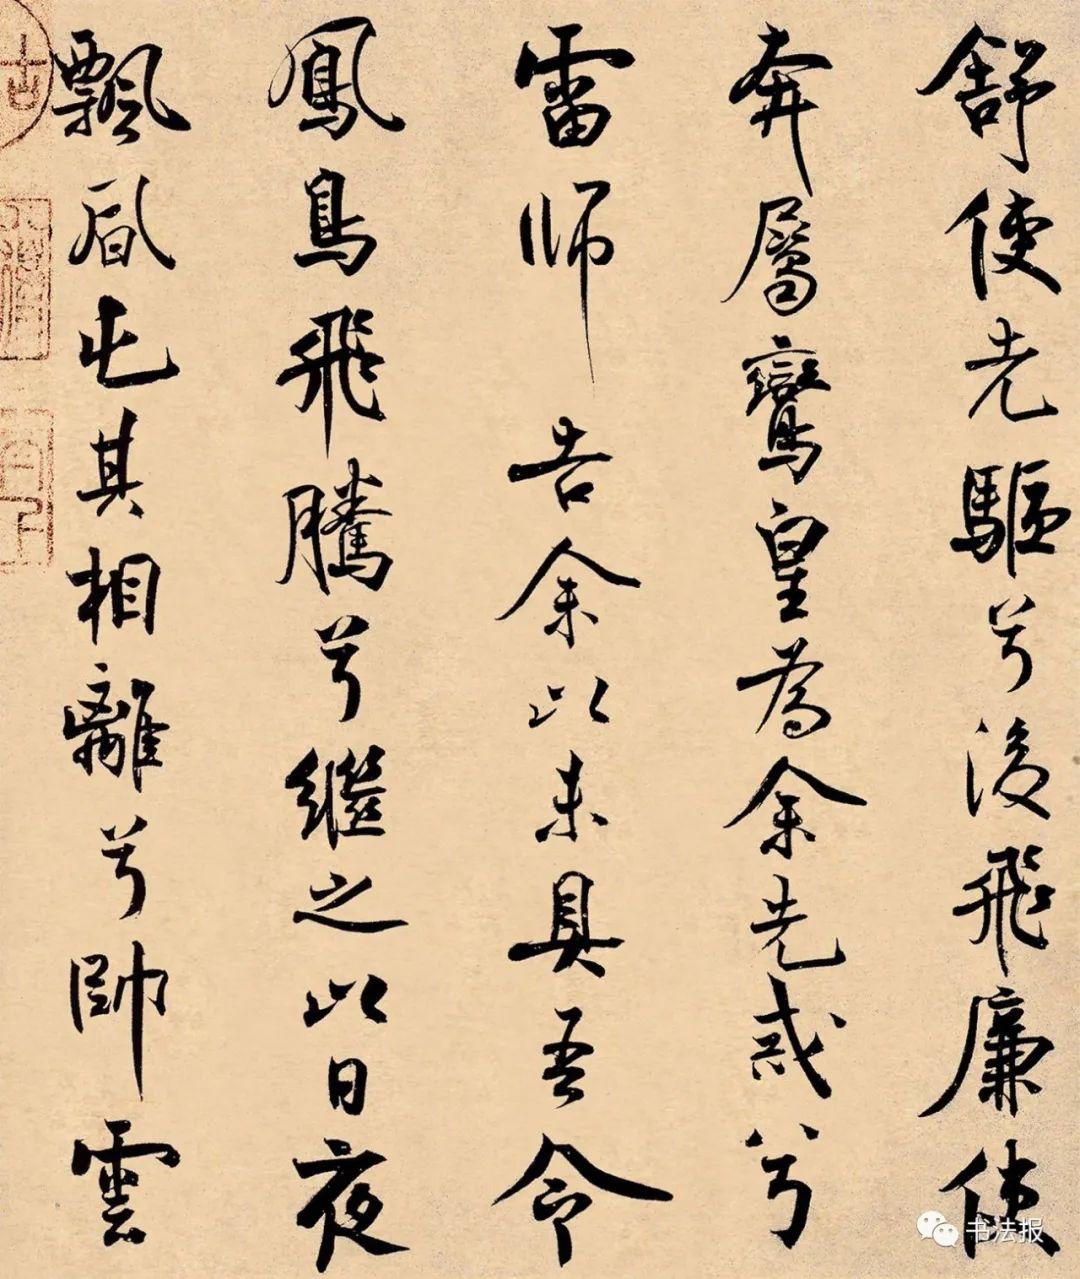 舒使先驅兮後飛廉使
奔屬鸞皇為余先戒兮
雷師告余以未具吾令
鳳鳥飛騰兮繼之以日夜
飄風屯其相離兮帥雲
书法报